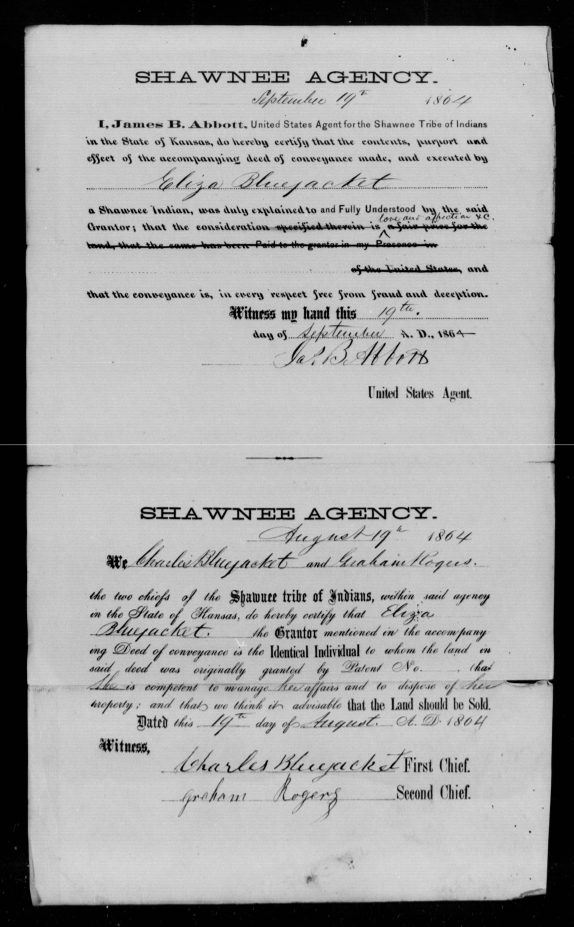 SHAWNEE AGENCY.
September 19th 1864
I, James B. Abbott, United States Agent for the Shawnee Tribe of Indians
in the State of Kansas, do hereby certify that the contents, purport and
effect of the accompanying deed of conveyance made, and executed by
Eliza Bluejacket
a Shawnee Indian, was duly explained to and Fully Understood by the said
love and affection &c.
Grantor; that the consideration specified therein is a fair price for the
land, that the same has been Paid to the grantor in my Presence in
of the United States, and
that the conveyance is, in every respect free from fraud and deception.
Witness my hand this 19th.
day of September A. D., 1864
Jas B. Abbott
United States Agent.
SHAWNEE AGENCY.
August 19th 1864
We, Charles Bluejacket and Graham Rogers.
the two chiefs of the Shawnee tribe of Indians, within said agency
in the State of Kansas, do hereby certify that Eliza
Bluejacket. the Grantor mentioned in the accompany
ing Deed of conveyance is the Identical Individual to whom the land in
said deed was originally granted by Patent No. that
She is competent to manage her affairs and to dispose of her
property; and that we think it advisable that the Land should be Sold.
Dated this 19th day of August. A. D. 1864
Witness,
Charles Bluejacket First Chief.
Graham Rogers Second Chief.